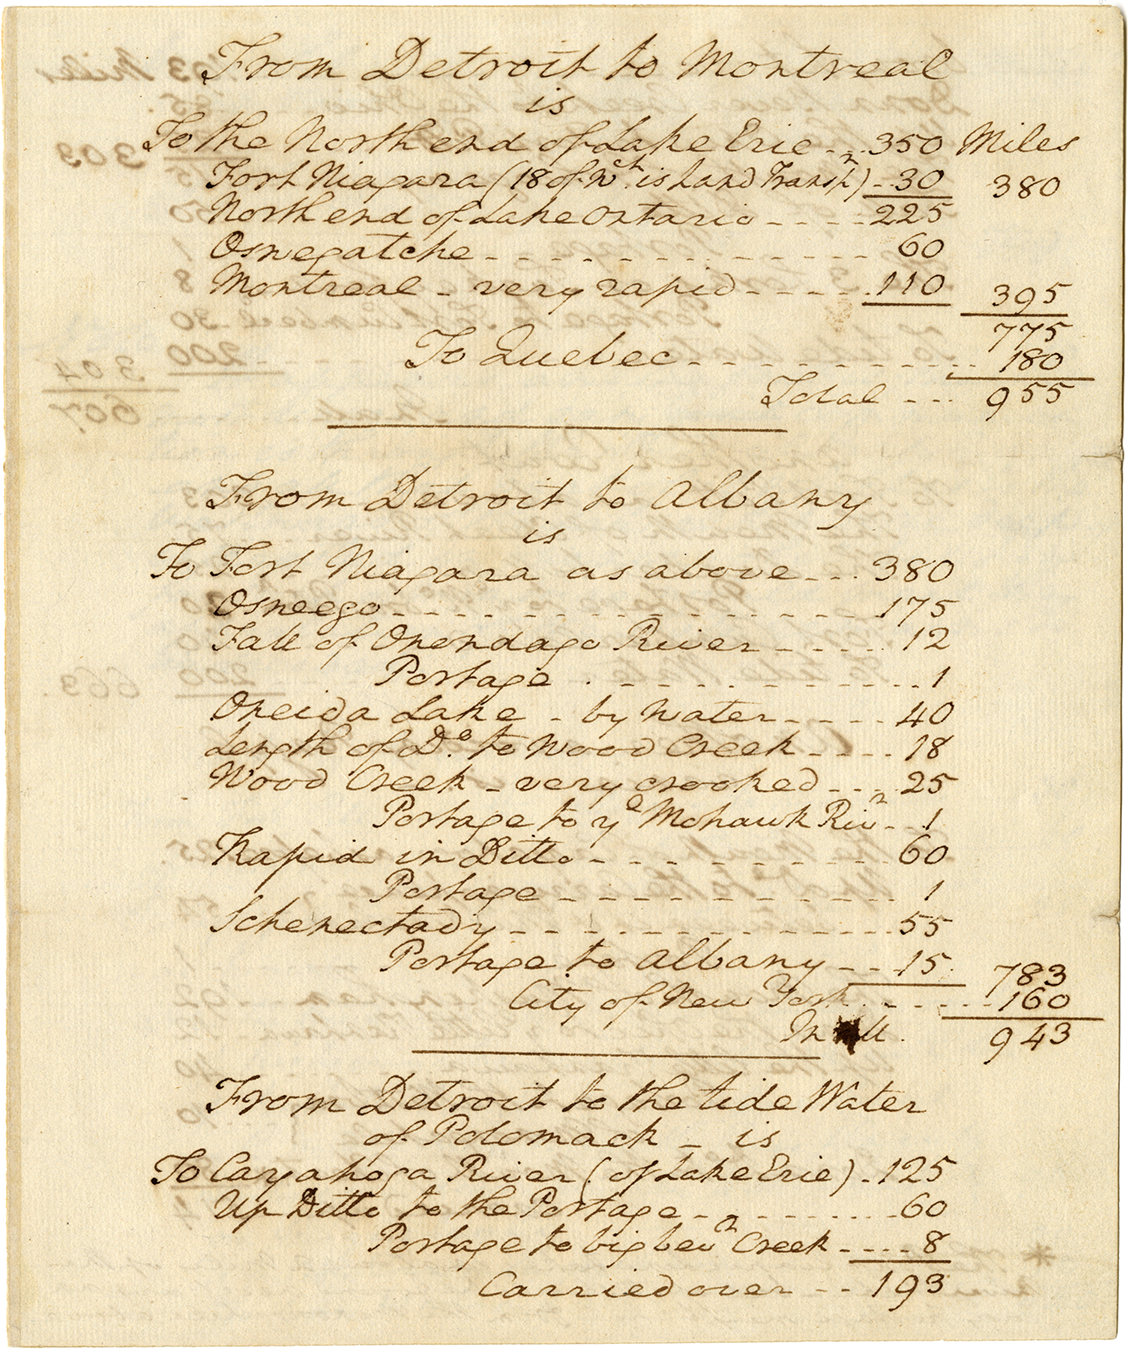 From Detroit to Montreal
is
To the North end of Lake Erie - - 350 Miles
Fort Niagara (18 of wch. is Land Transpn) - 30 380
North end of Lake Ontario - - - - 225
Oswegatche - - - - - - - - - - - - - 60
Montreal - very rapid - - - - 110 395
775
To Quebec - - - - - - - - - - 180
Total - - - 955
From Detroit to Albany
is
To Fort Niagara as above - - - 380
Oswego - - - - - - - - - - - - - - - 175
Fall of Onondago River - - - - - 12
Portage - - - - - - - - - - - 1
Oneida Lake - by Water - - - - 40
Length of Do. to Wood Creek - - - - 18
Wood Creek - very crooked - - - - 25
Portage to ye Mohawk Rivr - - 1
Rapid in Ditto - - - - - - - - - 60
Portage - - - - - - - - - - - 1
Schenectady - - - - - - - - - - - - - 55
Portage to Albany - - - 15 783
City of New York - - - - - 160
In all 943
From Detroit to the tide Water
of Potomack - is
To Cayahoga River (of Lake Erie) - 125
Up Ditto to the Portage - - - - - - - - 60
Portage to big bevr Creek - - - - 8
Carried over - - 193